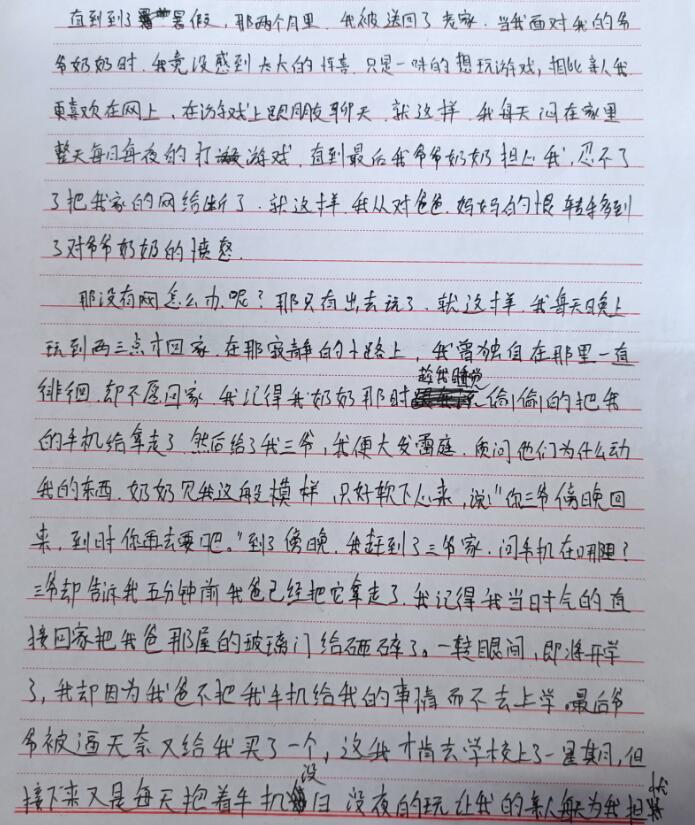 直到到了暑假，那两个月里，我被送回了老家。当我面对我的爷
爷奶奶时，我竟没感到大大的惊喜，只是一味的想玩游戏，相比亲人我
更喜欢在网上，在游戏上跟朋友聊天，就这样，我每天闷在家里
整天每日每夜的打游戏，直到最后我爷爷奶奶担心我，忍不了
了把我家的网给断了，就这样，我从对爸爸，妈妈的恨转移到
了对爷爷奶奶的愤怒
那没有网怎么办呢？那只有出去玩了，就这样，我每天晚上
玩到两三点才回家，在那寂静的小路上，我曾独自在那里一直
徘徊，却不愿回家，我记得我奶奶那时趁我睡觉偷偷的把我
的手机给拿走了，然后给了我三爷，我便大发雷庭，质问他们为什么动
我的东西，奶奶见我这般模样，只好软下心来，说："你三爷傍晚回
来，到时你再去要吧。"到了傍晚，我赶到了三爷家，问手机在哪里？
三爷却告诉我五分钟前我爸已经把它拿走了，我记得我当日时气的直
接回家把我爸那屋的玻璃门给砸碎了。一转眼间，即将开学
了，我却因为我爸不把我手机给我的事情而不去上学。最后爷
爷被逼无奈又给我买了一个，这我才肯去学校上了一星期，但
接下来又是每天抱着手机没日没夜的玩让我的亲人每天为我担忧